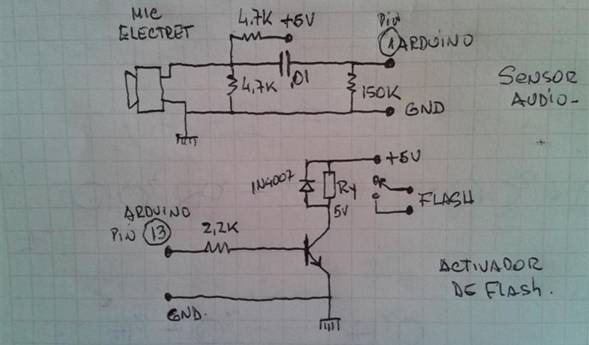 MIC
ELECTRET
4.7K +5V
Pin
1 ARDUINO
4,7K
,01
150K
GND
SENSOR
AUDIO-
1N4007
+5V
Ry
5V
FLASH
ARDUINO
PIN 13
2,2K
GND.
ACTIVADOR
DE FLASH.